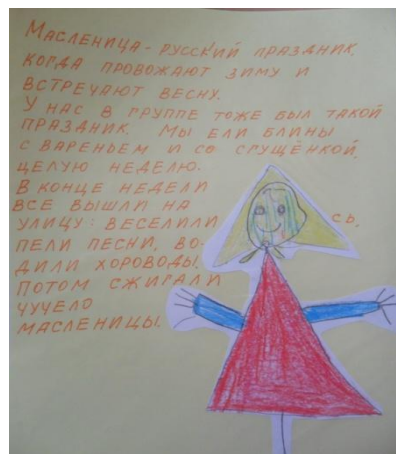 Масленица - русский праздник,
когда провожают зиму и
встречают весну.
У нас в группе тоже был такой
праздник. Мы ели блины
с вареньем и со сгущёнкой,
целую неделю.
В конце недели
все вышли на
улицу: веселились,
пели песни, во-
дили хороводы.
Потом сжигали
чучело
Масленицы.